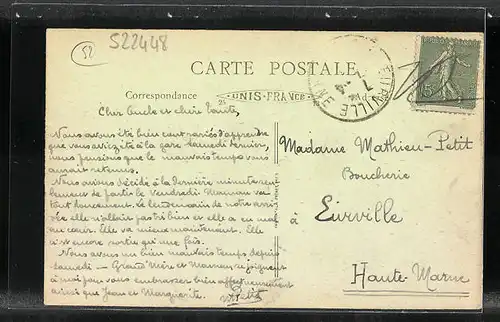 52
522448
CARTE POSTALE
Correspondance
UNIS-FRANCE
15
Cher Oncle et chère tante,
Nous avons été bien contrariés d'apprendre
que vous aviez été à la gare samedi dernier,
nous pensions que le mauvais temps vous
aurait retenus.
Nous avions décidé à la dernière minute seu-
lement de partir le vendredi Maman va
tout doucement. Le lendemain de notre arri-
vée elle n'allait pas très bien et elle a eu mal
au cœur. Elle va mieux maintenant. Elle
n'est encore sortie qu'une fois.
Nous avons un bien mauvais temps depuis
samedi - Grand'Mère et Maman se joignent
à moi pour vous embrasser bien affectueusement
ainsi que Jean et Marguerite.
Petit
Madame Mathieu-Petit
Boucherie
à Eurville
Haute-Marne